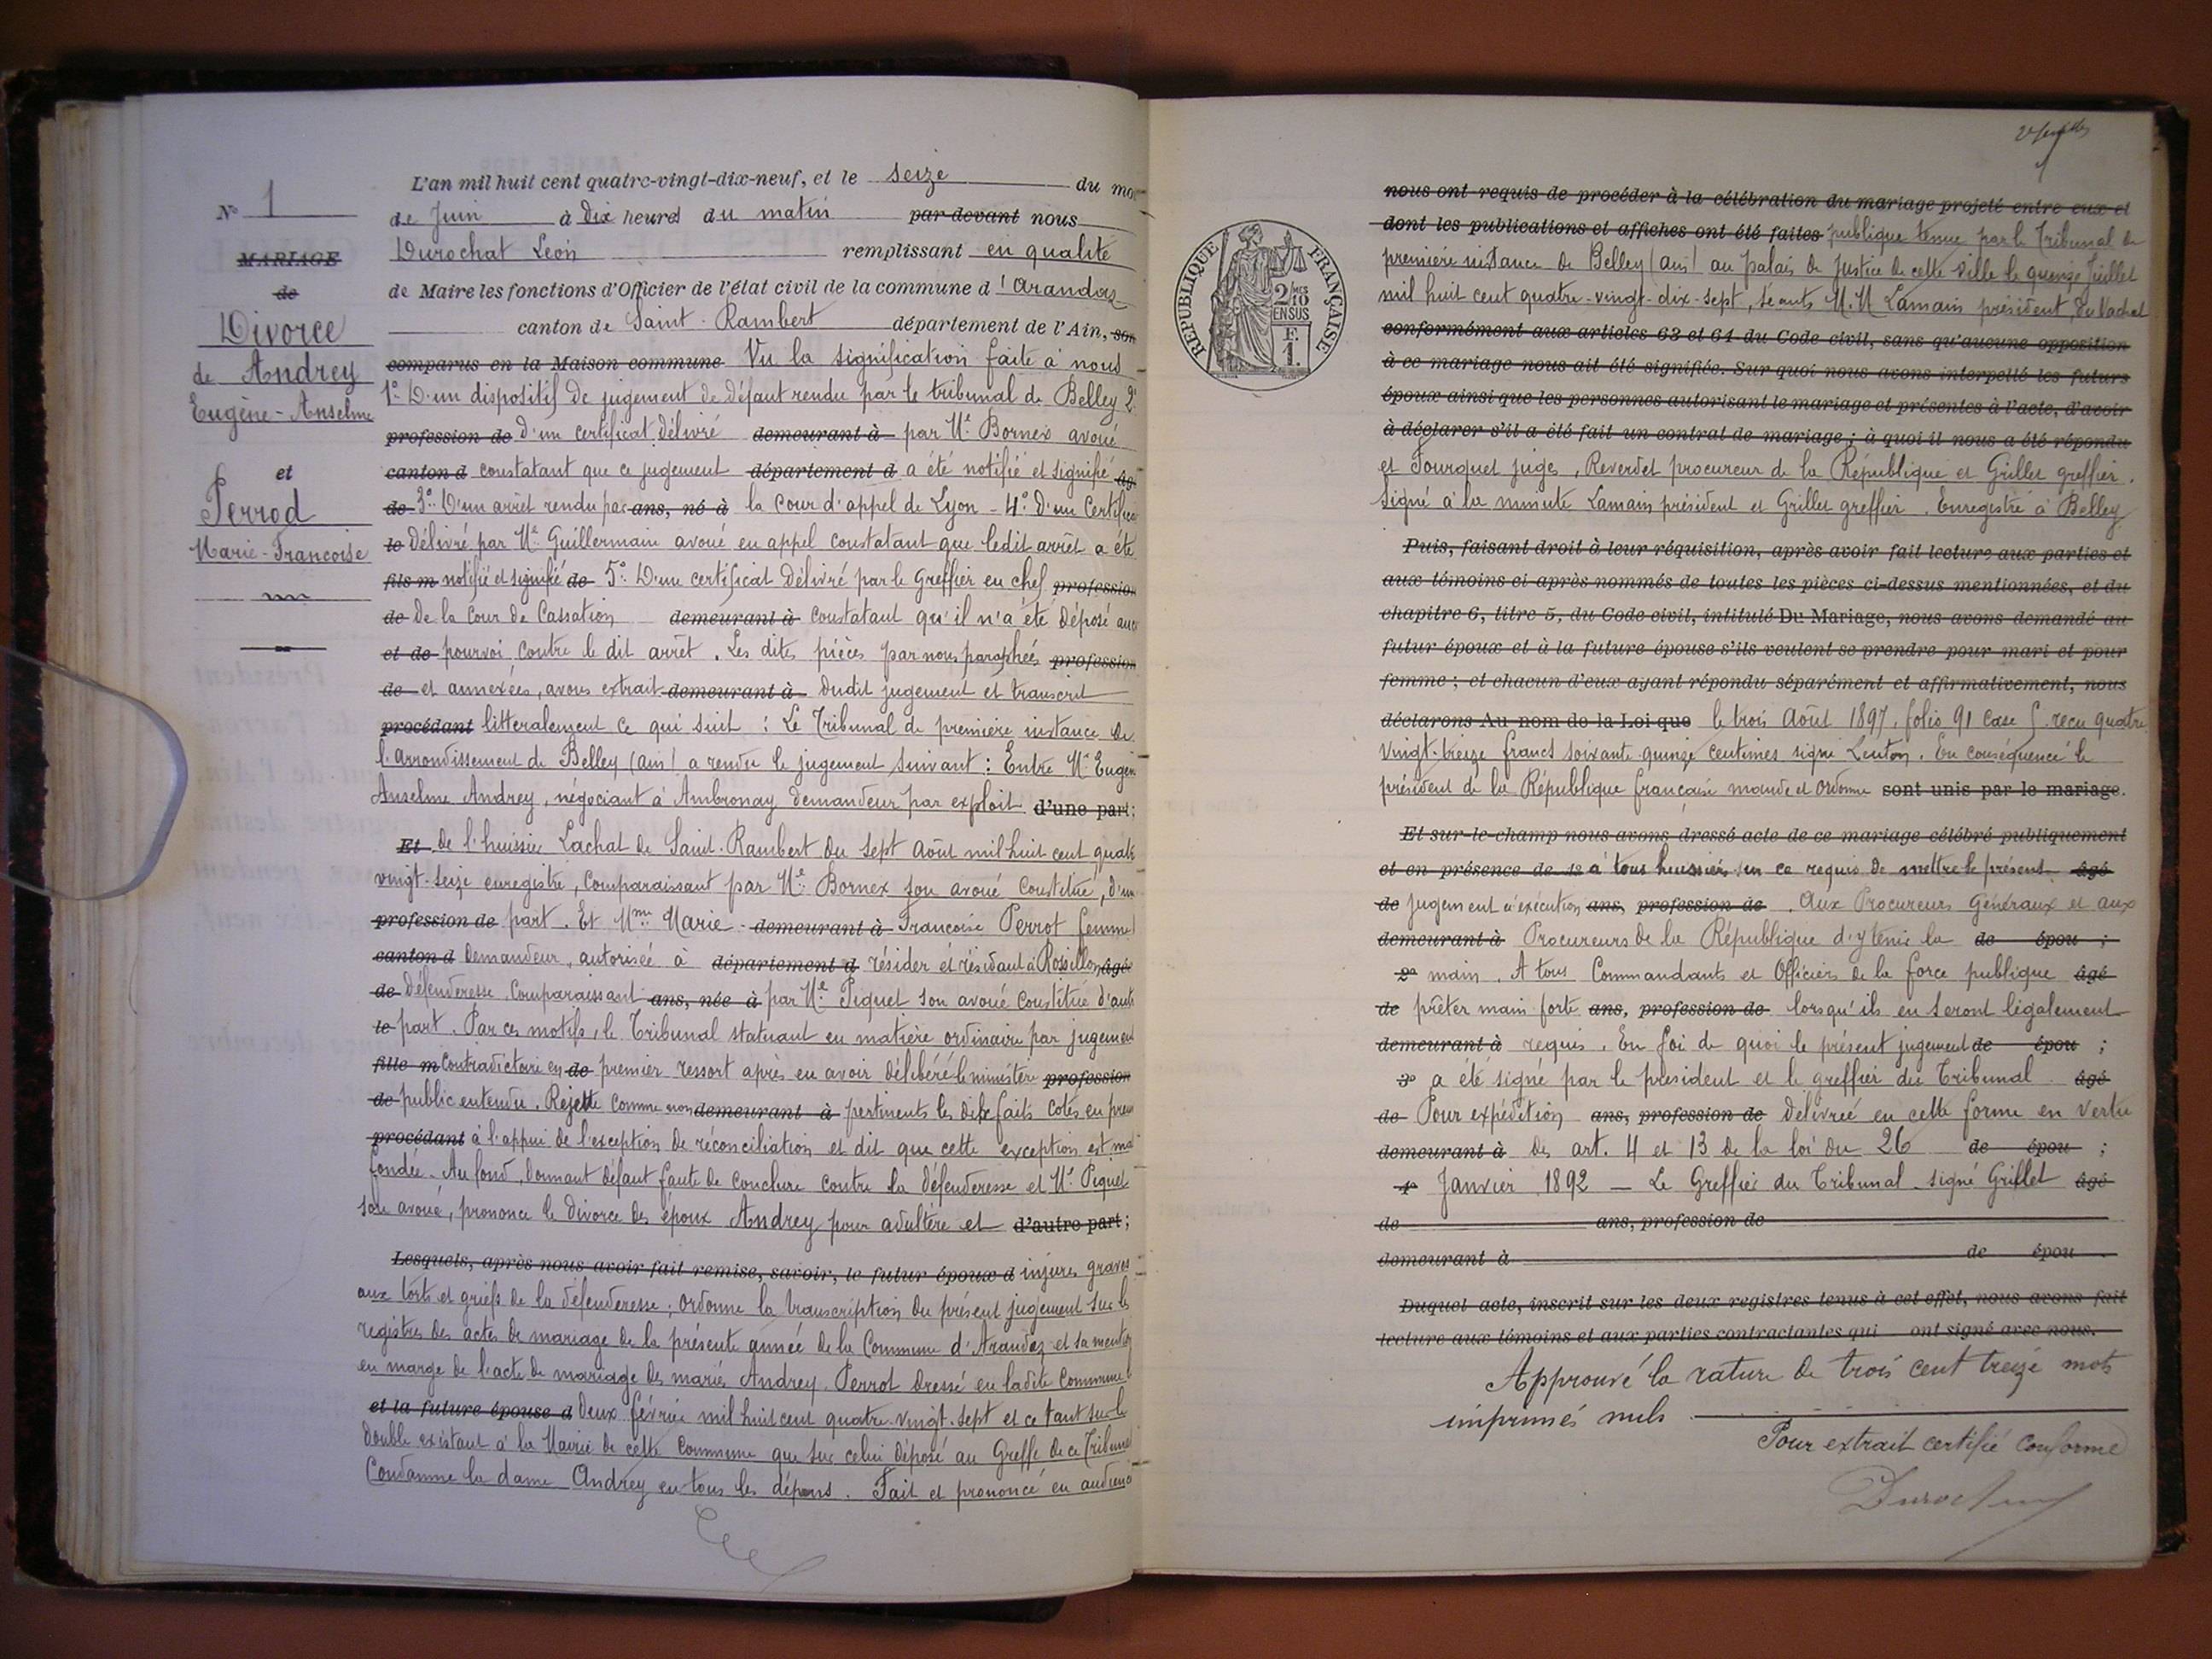 N° 1
MARIAGE
de
Divorce
de Andrey
Eugène-Anselme
et
Perrod
Marie-Françoise
L'an mil huit cent quatre-vingt-dix-neuf, et le seize du mo
de Juin à dix heures du matin par devant nous
Durochat Léon remplissant en qualité
de Maire les fonctions d'Officier de l'état civil de la commune d'Arandaz
canton de Saint-Rambert département de l'Ain, son
comparus en la Maison commune Vu la signification faite à nous
1° D'un dispositif de jugement de défaut rendu par le tribunal de Belley 2°
profession de d'un certificat délivré demeurant à par Me Bornex avoué
canton d constatant que ce jugement département d a été notifié et signifié âgé
de 3° D'un arrêt rendu par ans, né à la Cour d'appel de Lyon - 4° d'un Certifica
le délivré par Me Guillermain avoué en appel constatant que ledit arrêt a été
fils m notifié et signifié de 5° D'un certificat délivré par le Greffier en chef profession
de De la Cour de Cassation demeurant à constatant qu'il n'a été déposé auc
et de pourvoi contre le dit arrêt. Les dites pièces par nous paraphées profession
de et annexées, avons extrait demeurant à dudit jugement et transcrit
procédant littéralement ce qui suit : Le Tribunal de première instance de
l'arrondissement de Belley (ain) a rendu le jugement suivant : Entre Mr Eugèn
Anselme Andrey, négociant à Ambronay demandeur par exploit d'une part;
Et de l'huissier Lachat de Saint-Rambert du sept Août mil huit cent quatre
vingt-seize enregistré, comparaissant par Me Bornex son avoué constitué, d'une
profession de part. Et Mme Marie- demeurant à Françoise Perrot femme
canton d demandeur, autorisée à département d résider et résidant à Rossillon âgée
de défenderesse comparaissant ans, née à par Me Piquet son avoué constitué d'autr
le part. Par ces motifs, le Tribunal statuant en matière ordinaire par jugement
fille m contradictoire en de premier ressort après en avoir délibéré le ministère profession
de public entendu. Rejette comme non demeurant à pertinents les dix faits cotés en preu
procédant à l'appui de l'exception de réconciliation et dit que cette exception est mal
fondée. Au fond, donnant défaut faute de conclure contre la défenderesse et Me Piquet
son avoué, prononce le divorce des époux Andrey pour adultère et d'autre part;
Lesquels, après nous avoir fait remise, savoir, le futur époux d injures graves
aux torts et griefs de la défenderesse; ordonne la transcription du présent jugement sur les
registres des actes de mariage de la présente année de la Commune d'Arandaz et sa mention
en marge de l'acte de mariage des mariés Andrey Perrot dressé en ladite Commune l
et la future épouse d deux février mil huit cent quatre-vingt-sept et ce tant sur le
double existant à la Mairie de cette Commune que sur celui déposé au Greffe de ce Tribunal
Condamne la dame Andrey en tous les dépens. Fait et prononcé en audienc
RÉPUBLIQUE FRANÇAISE
2/MES
10
EN SUS
F.
1.
nous ont requis de procéder à la célébration du mariage projeté entre eux et
dont les publications et affiches ont été faites publique tenue par le Tribunal de
première instance de Belley (ain) au palais de Justice de cette ville le quinze Juillet
mil huit cent quatre-vingt-dix-sept, séants M.M Lamain président, du Vachat
conformément aux articles 63 et 64 du Code civil, sans qu'aucune opposition
à ce mariage nous ait été signifiée. Sur quoi nous avons interpellé les futurs
époux ainsi que les personnes autorisant le mariage et présentes à l'acte, d'avoir
à déclarer s'il a été fait un contrat de mariage; à quoi il nous a été répondu
et Fourquet juges, Reverdet procureur de la République et Grillet greffier.
Signé à la minute Lamain président et Grillet greffier. Enregistré à Belley
Puis, faisant droit à leur réquisition, après avoir fait lecture aux parties et
aux témoins ci-après nommés de toutes les pièces ci-dessus mentionnées, et du
chapitre 6, titre 5, du Code civil, intitulé Du Mariage, nous avons demandé au
futur époux et à la future épouse s'ils veulent se prendre pour mari et pour
femme; et chacun d'eux ayant répondu séparément et affirmativement, nous
déclarons Au nom de la Loi que le trois Août 1897, folio 91 case reçu quatre
vingt-treize francs soixante-quinze centimes signé Lenton. En conséquence le
président de la République française mande et ordonne sont unis par le mariage.
Et sur-le-champ nous avons dressé acte de ce mariage célébré publiquement
et en présence de 1° à tous huissiers sur ce requis de mettre le présent âgé
de jugement à exécution ans, profession de . Aux Procureurs Généraux et aux
demeurant à Procureurs de la République d'y tenir la de épou ;
2° main. A tous Commandants et Officiers de la force publique âgé
de prêter main forte ans, profession de lorsqu'ils en seront légalement
demeurant à requis. En foi de quoi le présent jugement de épou ;
3° a été signé par le président et le greffier du Tribunal âgé
de Pour expédition ans, profession de délivrée en cette forme en vertu
demeurant à des art. 4 et 13 de la loi du 26 de épou ;
4° Janvier 1892 — Le Greffier du Tribunal signé Grillet âgé
de ans, profession de
demeurant à de épou .
Duquel acte, inscrit sur les deux registres tenus à cet effet, nous avons fait
lecture aux témoins et aux parties contractantes qui ont signé avec nous.
Approuvé la rature de trois cent treize mots
imprimés nuls
Pour extrait certifié conforme
Durochat